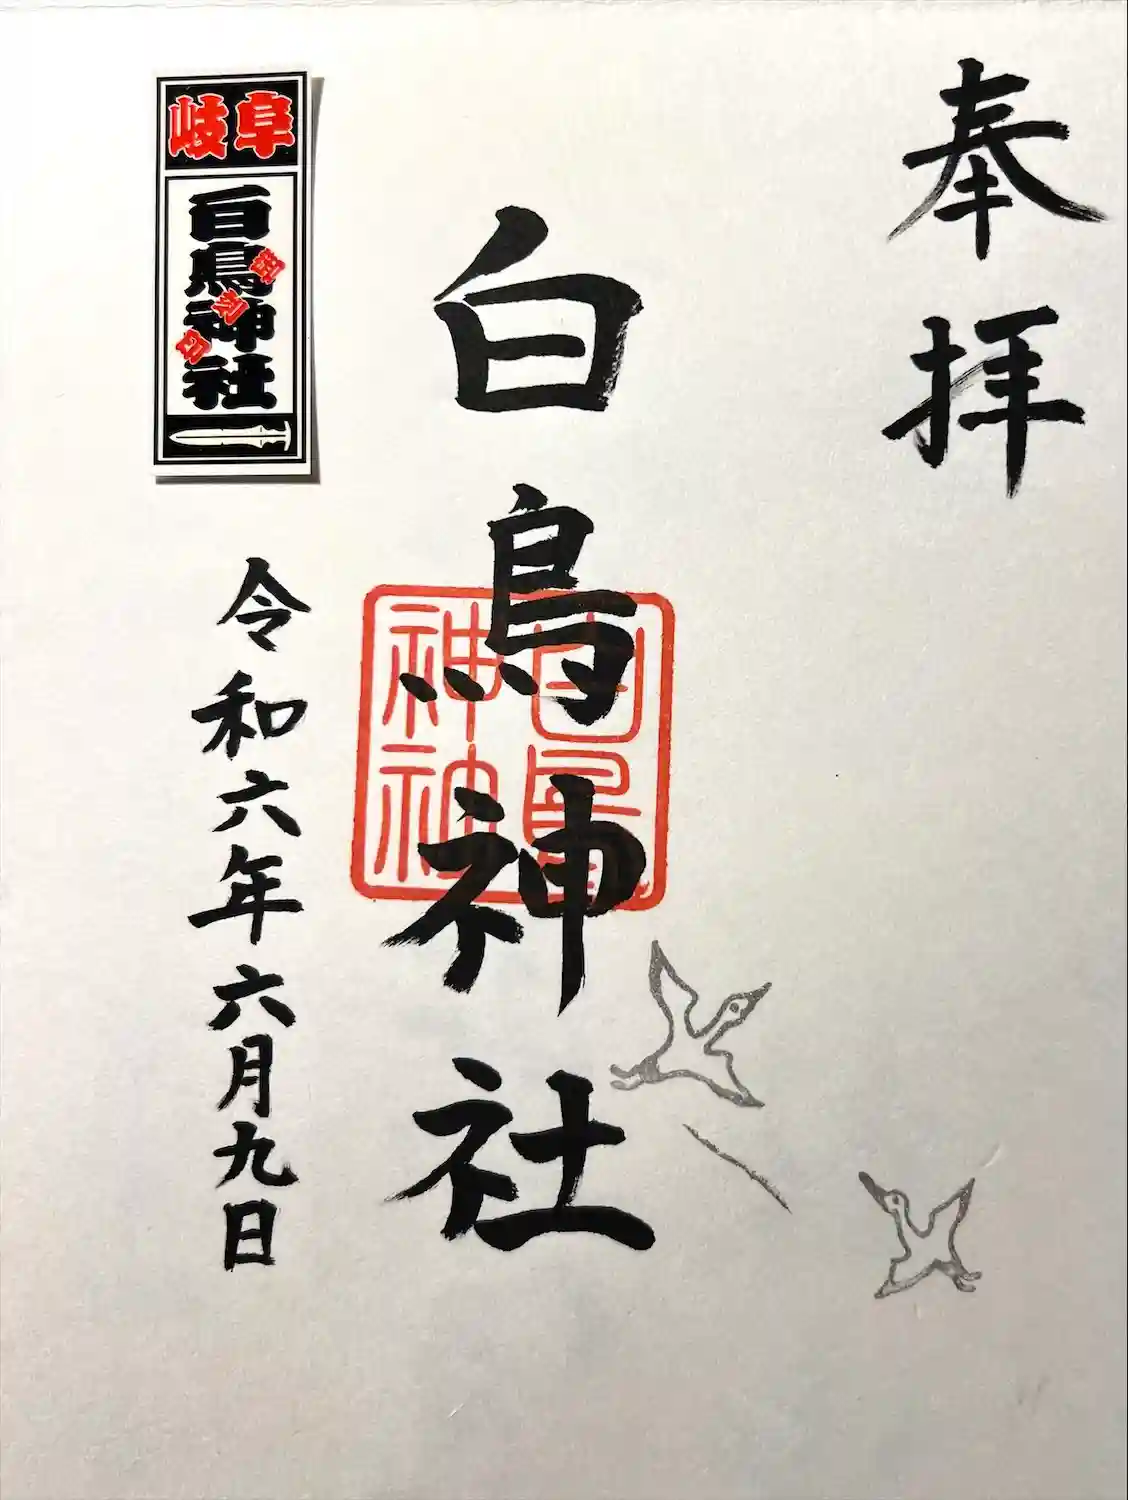 奉拝
白鳥神社
白鳥神社
岐阜
白鳥神社
令和六年六月九日